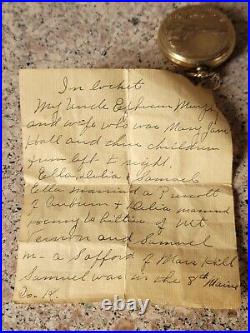 In locket
My Uncle Ephraim
and wife who was Mary Jane
Hall and their children
from left to right.
Ella, Delia & Samuel.
Ella married a
of Auburn & Delia married
of Mt
Vernon and Samuel
m - a Safford of Mars Hill
Samuel was in the 8th Maine
Co. K.